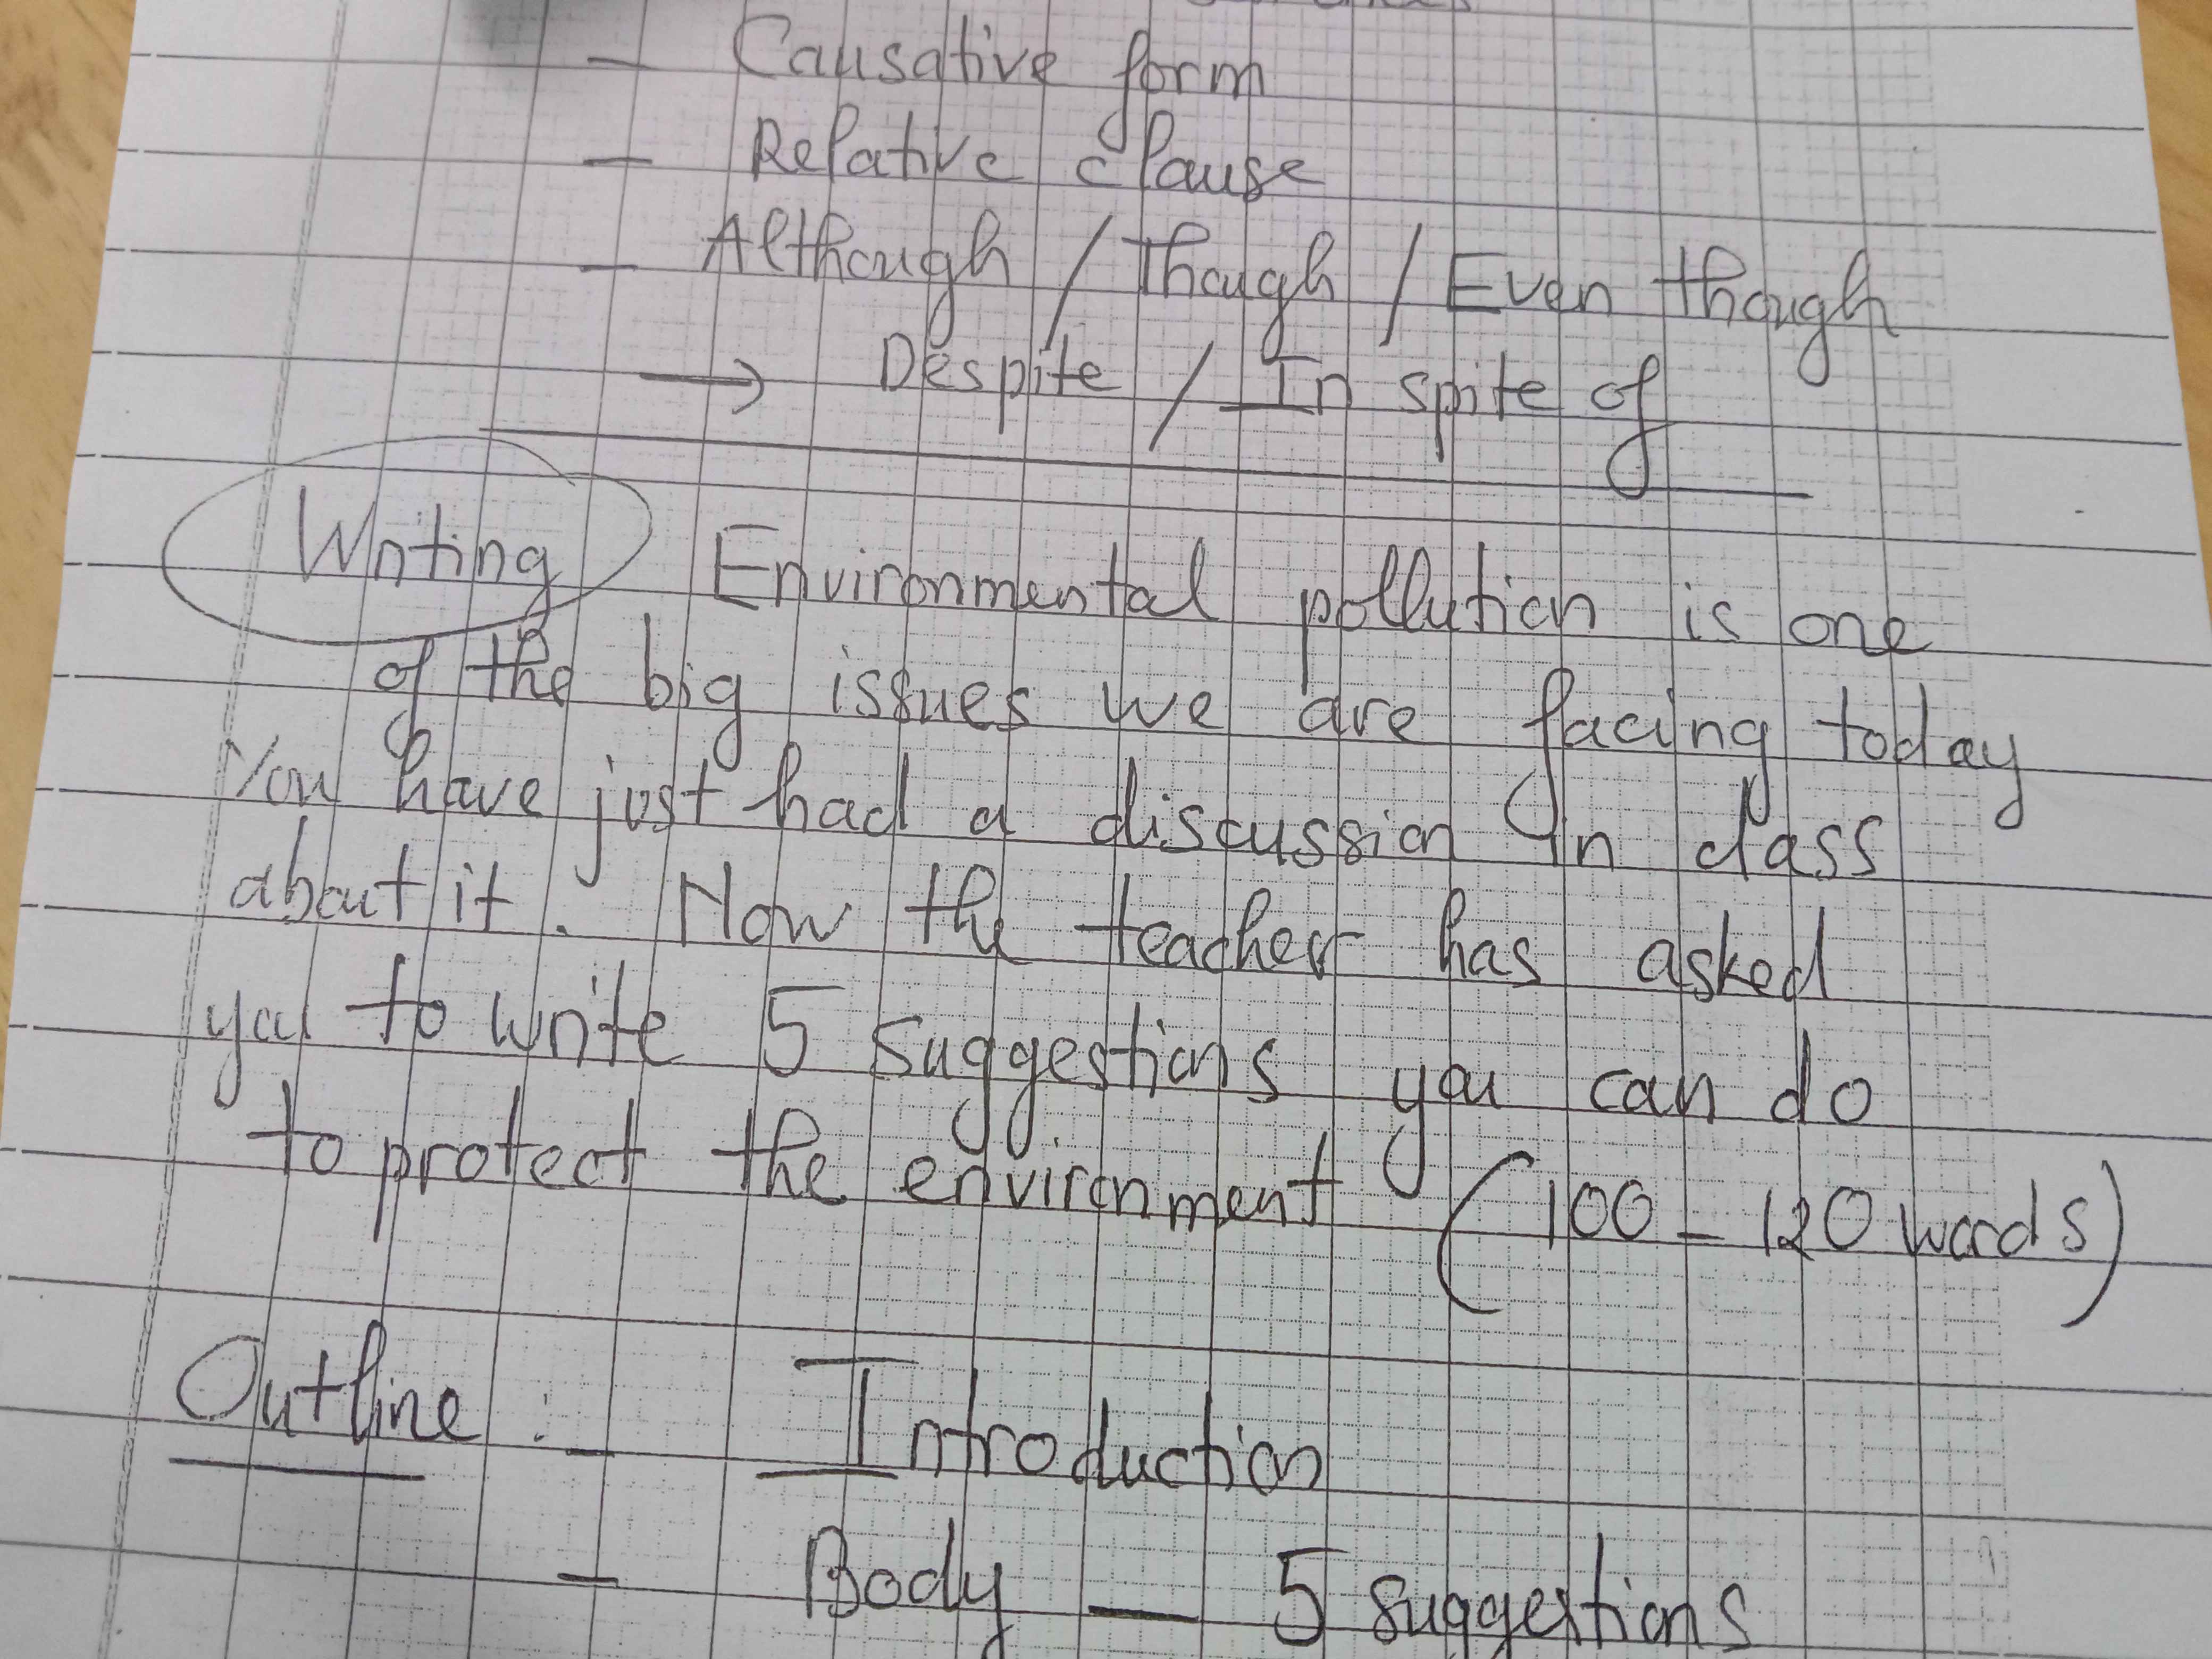 - Causative form
- Relative clause
- Although / Though / Even though
→ Despite / In spite of
Writing Environmental pollution is one
of the big issues we are facing today
You have just had a discussion in class
about it. Now the teacher has asked
you to write 5 suggestions you can do
to protect the environment (100 - 120 words)
Outline : - Introduction
- Body - 5 suggestions